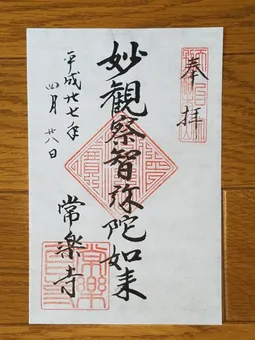 奉拝
妙観察智弥陀如来
常楽寺
平成廿七年
四月廿八日